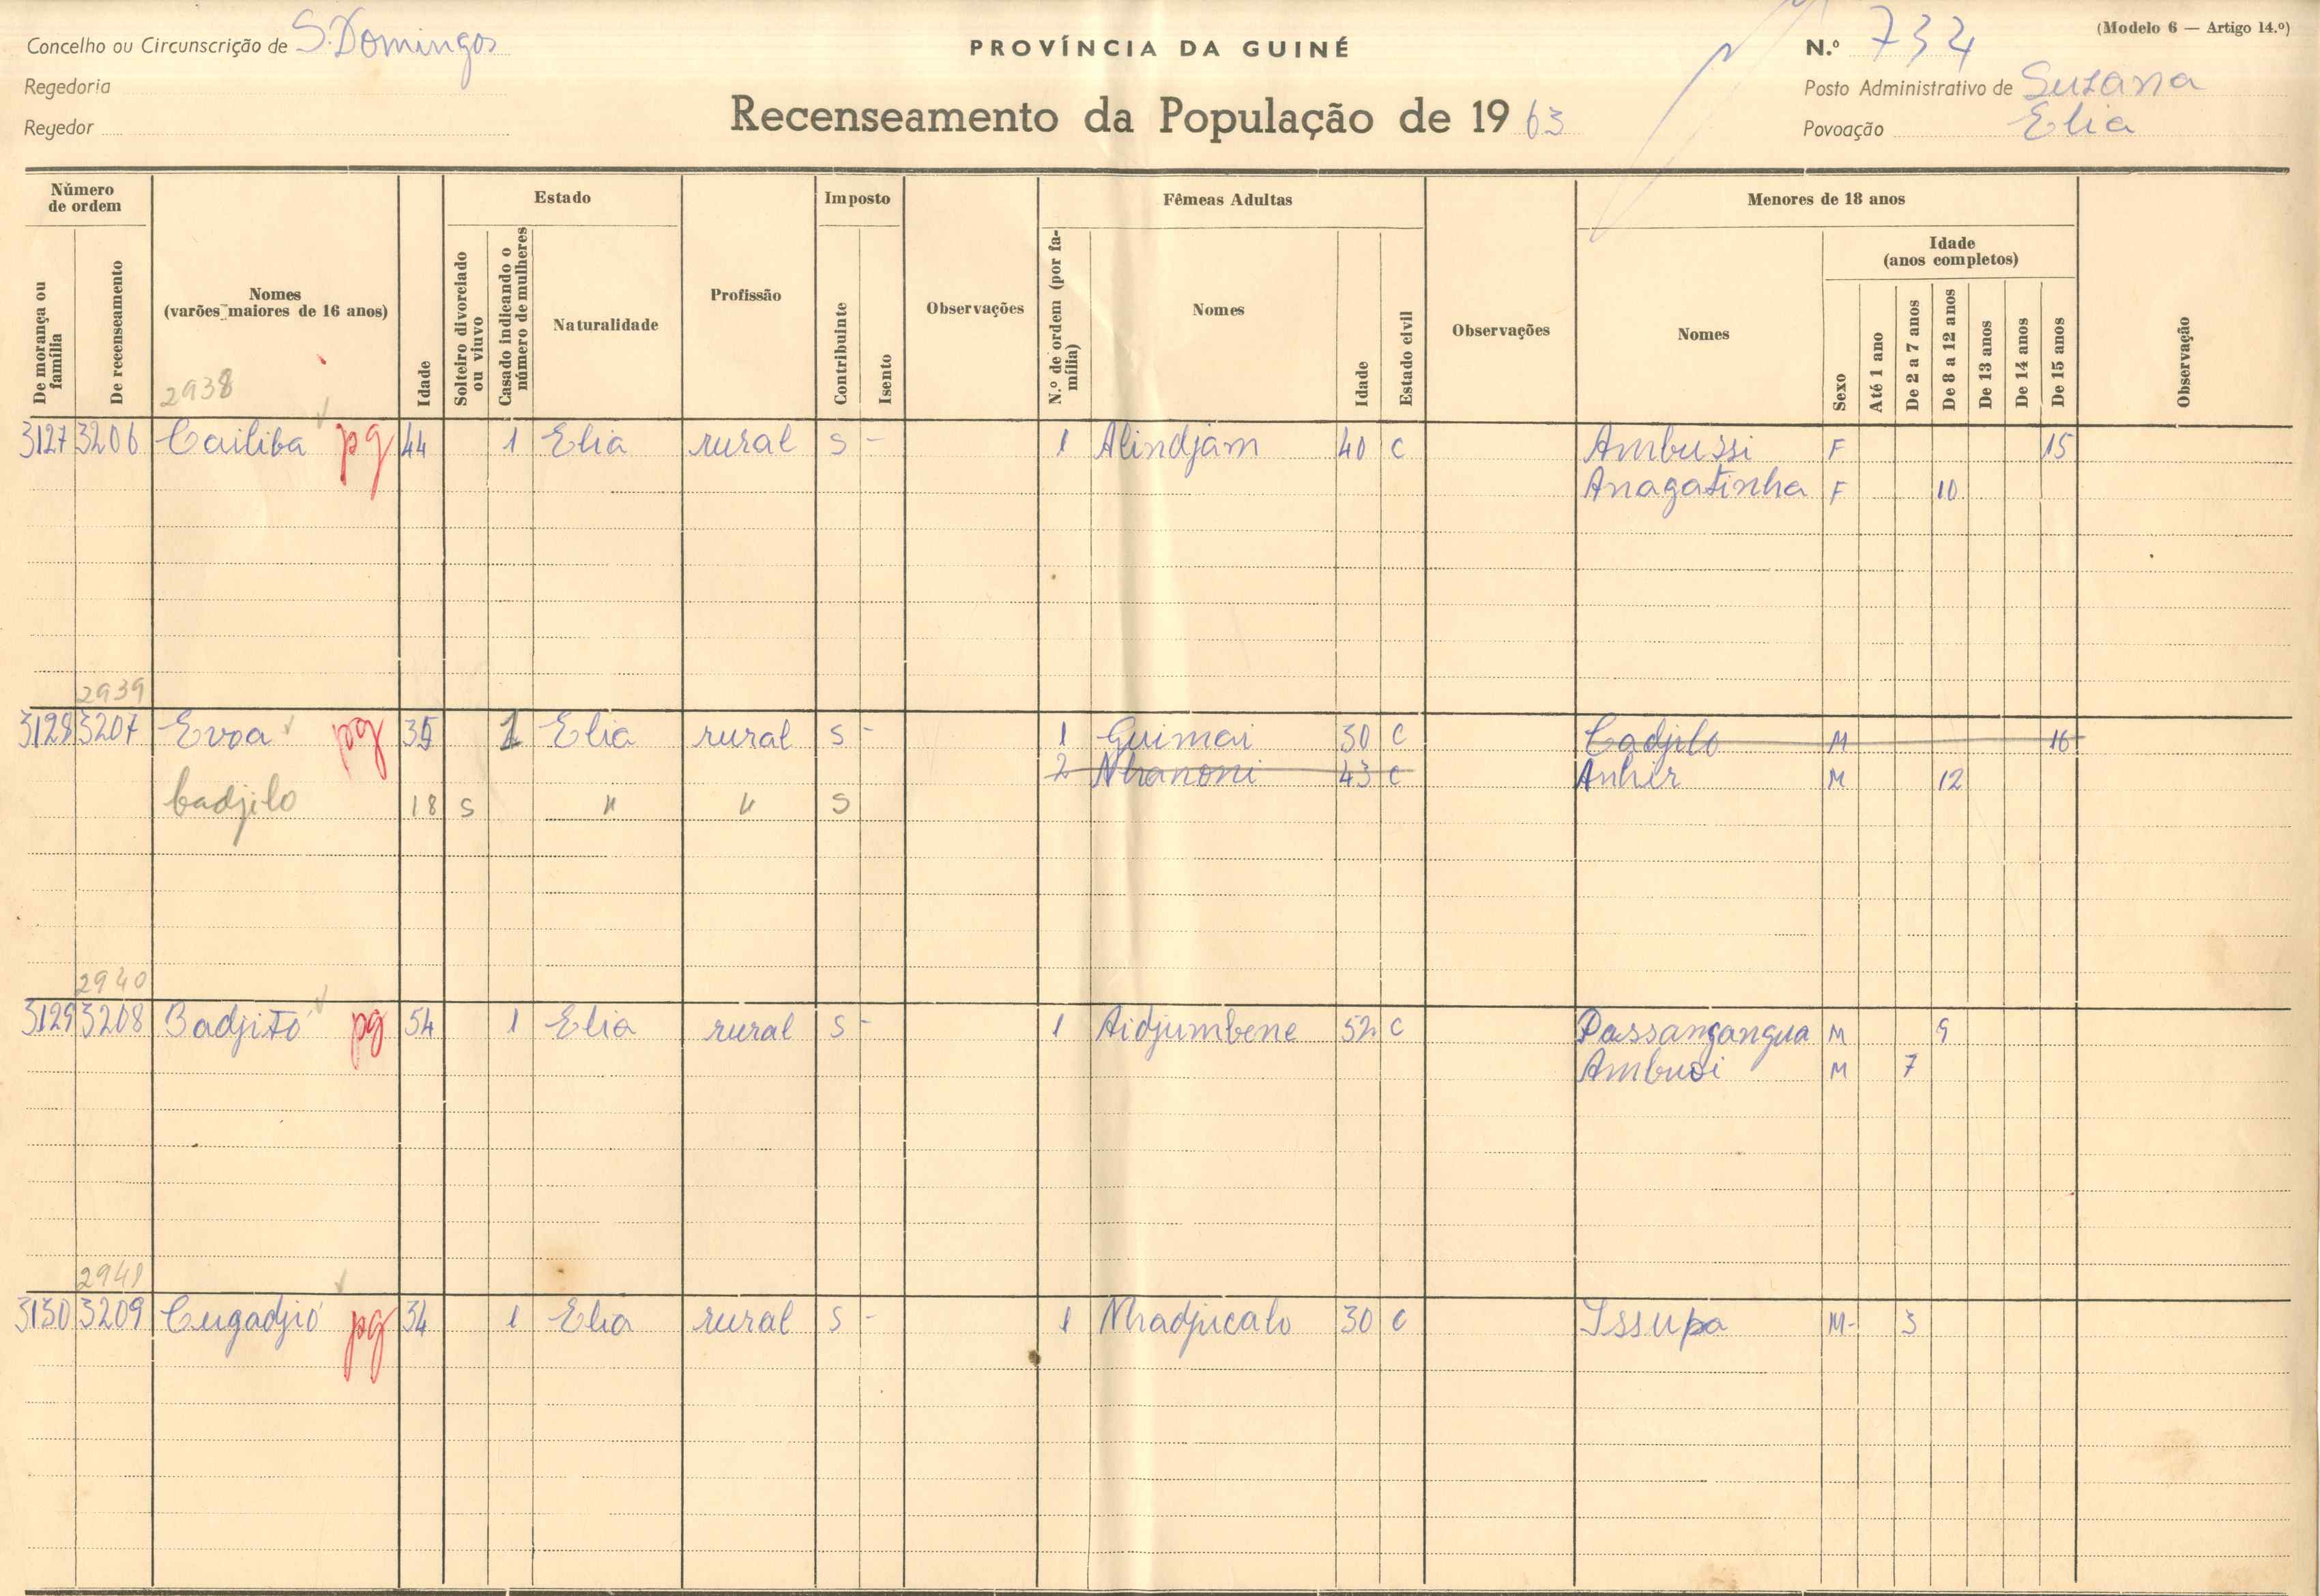 Concelho ou Circunscrição de S. Domingos
PROVÍNCIA DA GUINÉ
N.º 734
(Modelo 6 — Artigo 14.º)
Regedoria
Posto Administrativo de Suzana
Regedor
Recenseamento da População de 1963
Povoação Elia
Número de ordem
De morança ou família
De recenseamento
Nomes (varões maiores de 16 anos)
Idade
Estado
Solteiro divorciado ou viuvo
Casado indicando o número de mulheres
Naturalidade
Profissão
Imposto
Contribuinte
Isento
Observações
Fêmeas Adultas
N.º de ordem (por família)
Nomes
Idade
Estado civil
Observações
Menores de 18 anos
Nomes
Sexo
Idade (anos completos)
Até 1 ano
De 2 a 7 anos
De 8 a 12 anos
De 13 anos
De 14 anos
De 15 anos
Observação
2938
3127 3206 Cailiba pg 44 1 Elia rural S - 1 Alindjam 40 C Ambussi F 15
Anagatinha F 10
2939
3128 3207 Evoa pg 35 1 Elia rural S - 1 Guimai 30 C Cadjilo M 16
2 Nhanoni 43 C Anhir M 12
badjilo 18 S " " S
2940
3129 3208 Badjito pg 54 1 Elia rural S - 1 Aidjumbene 52 C Passangangua M 9
Ambusi M 7
2941
3130 3209 Cugadjió pg 34 1 Elia rural S - 1 Nhadjucalo 30 C Issupa M- 3